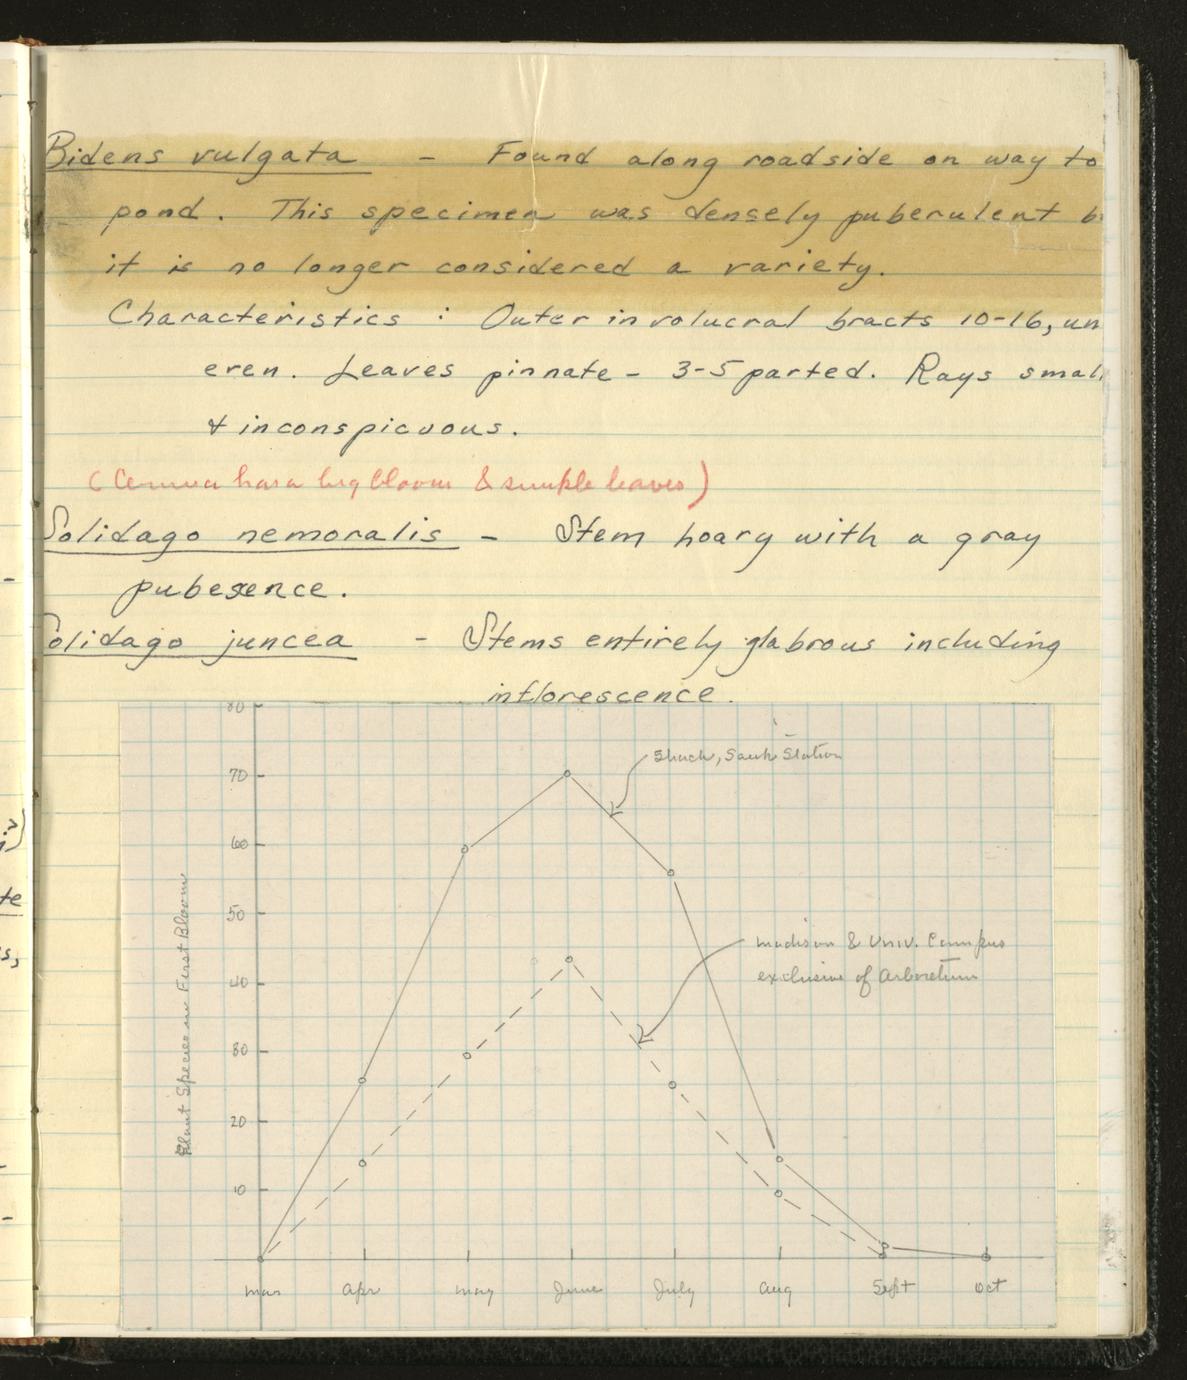 Bidens vulgata - Found along roadside on way to
pond. This specimen was densely puberulent b
it is no longer considered a variety.
Characteristics : Outer involucral bracts 10-16, un
even. Leaves pinnate - 3-5 parted. Rays small
& inconspicuous.
(Cernua has a big bloom & simple leaves)
Solidago nemoralis - Stem hoary with a gray
pubescence.
Solidago juncea - Stems entirely glabrous including
inflorescence.
80
Shack, Sauk Station
70
60
50
Madison & Univ. Campus
exclusive of Arboretum
40
30
20
10
Plant Species in First Bloom
Mar Apr May June July Aug Sept Oct
te
s,